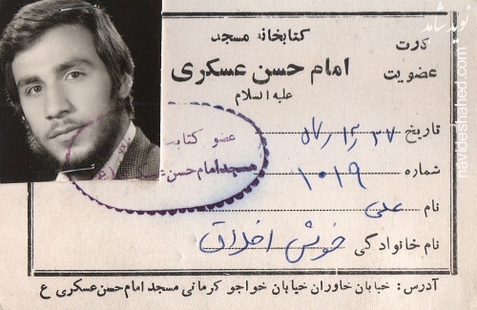 کارت
عضویت
کتابخانه مسجد
امام حسن عسکری
علیه السلام
تاریخ
شماره ۱۰۱۹
نام علی
نام خانوادگی خوش اخلاق
عضو کتابخانه
مسجد امام حسن عسکری
آدرس: خیابان خاوران خیابان خواجو کرمانی مسجد امام حسن عسکری ع
نوید شاهد
navideshahed.com